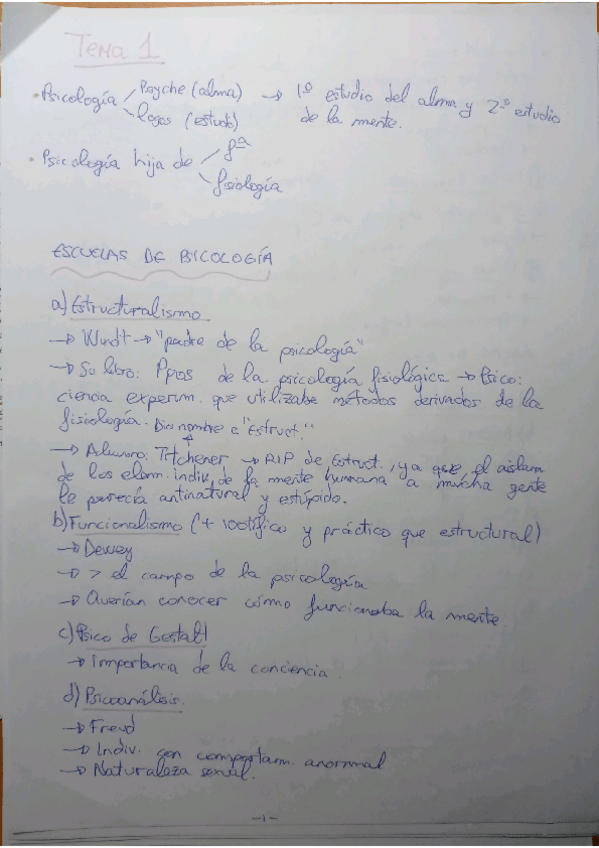 Tema 1
• Psicología Psyche (alma) → 1º estudio del alma y 2º estudio
logos (estudo) de la mente.
• Psicología hija de fª
fisiología
ESCUELAS DE PSICOLOGÍA
a) Estructuralismo
→ Wundt → "padre de la psicología"
→ Su libro: Ppios de la psicología fisiológica → Psico:
ciencia experim. que utilizabe métodos derivados de la
fisiología. Dio nombre a "Estruct."
→ Alumno: Titchener → RIP de Estruct., ya que, el aislam.
de los elem. indiv. de la mente humana a mucha gente
le parecía antinatural y estúpido.
b) Funcionalismo (+ 100tífico y práctico que estructural)
→ Dewey
→ > el campo de la psicología
→ Querían conocer cómo funcionaba la mente.
c) Psico de Gestalt
→ Importancia de la conciencia.
d) Psicoanálisis.
→ Freud
→ Indiv. con comportam. anormal
→ Naturaleza sexual.
-1-